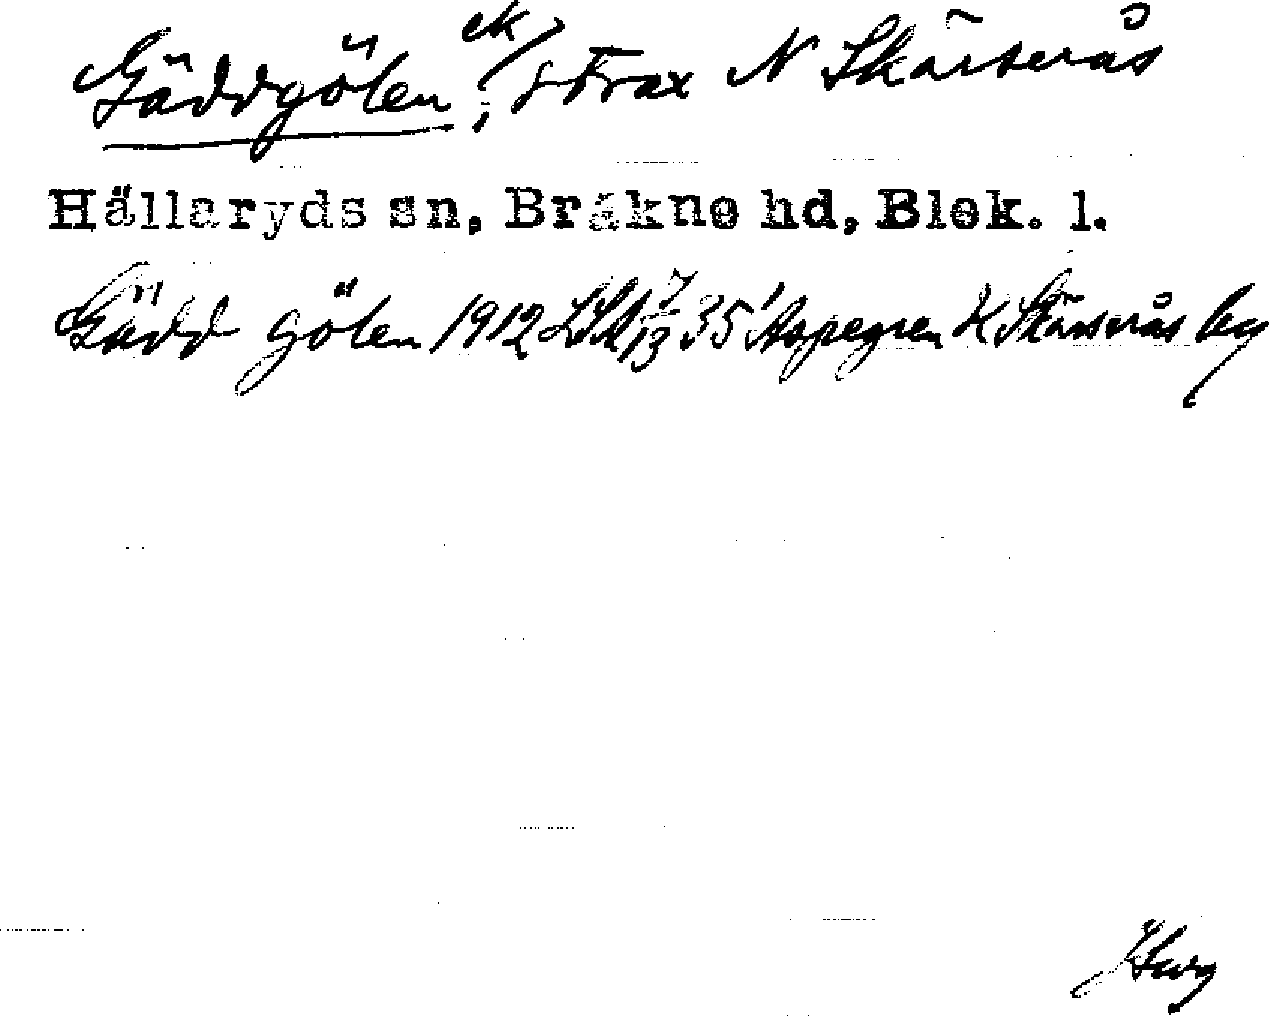 Gäddgölen ek/; strax N Skärserås
Hällaryds sn, Bräkne hd, Blek. l.
Gädd gölen 1912 LSA 7/13 35 Aspegren K Skärserås by